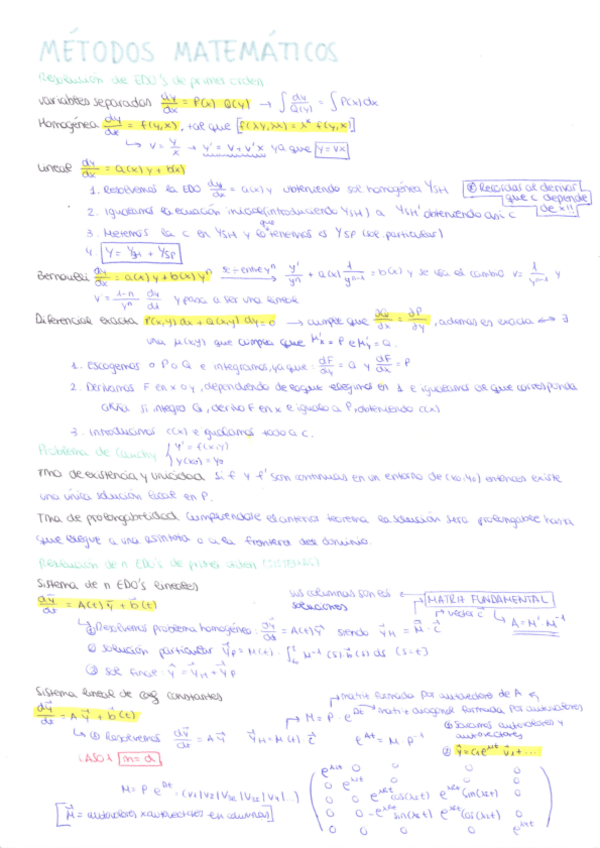 MÉTODOS MATEMÁTICOS
Resolución de EDO's de primer orden
variables separadas dy/dx = P(x) Q(y) → ∫ dy/Q(y) = ∫ P(x) dx
Homogénea dy/dx = f(y,x), tal que f(λy,λx) = λ^k f(y,x)
↳ v = y/x → y' = v + v'x ya que y = vx
Lineal dy/dx = a(x) y + b(x)
1. Resolvemos la EDO dy/dx = a(x) y obteniendo sol homogénea Y_SH
* Recordar al derivar que C depende de x!!
2. Igualamos la ecuación inicial (introduciendo Y_SH) a Y_SH' obteniendo así c
3. Metemos la c en Y_SH y tenemos Y_SP (sol. particular)
4. Y = Y_SH + Y_SP
Bernoulli dy/dx = a(x) y + b(x) y^n se ÷ entre y^n → y'/y^n + a(x) 1/y^(n-1) = b(x) y se usa el cambio v = 1/y^(n-1) y
v' = (1-n)/y^n dy/dx y pasa a ser una lineal
Diferencial exacta P(x,y) dx + Q(x,y) dy = 0 → cumple que ∂Q/∂x = ∂P/∂y, además es exacta ⟺ ∃
una μ(x,y) que cumpla que μ'x = P e μ'y = Q.
1. Escogemos o P o Q e integramos, ya que: dF/dy = Q y dF/dx = P
2. Derivamos F en x o y, dependiendo de lo que elegimos en 1 e igualamos al que corresponda
si integro Q, derivo F en x e igualo a P, obteniendo c(x)
3. Introducimos c(x) e igualamos todo a c.
Problema de Cauchy { y' = f(x,y) y(x0) = y0
Tma de existencia y unicidad si f y f' son continuas en un entorno de (x0,y0) entonces existe
una única solución local en P.
Tma de prolongabilidad cumpliéndose el anterior teorema la solución será prolongable hasta
que llegue a una asíntota o a la frontera del dominio.
Resolución de n EDO's de primer orden (SISTEMAS)
Sistema de n EDO's lineales
dy/dt = A(t) y + b(t)
sus columnas son las soluciones ← MATRIZ FUNDAMENTAL
↳ ① Resolvemos problema homogéneo: dy/dt = A(t) y siendo y_H = M · c
vector c
↳ A = M' · M^-1
② solución particular y_P = M(t) · ∫ M^-1(s) · b(s) ds (s=t)
③ sol final: y = y_H + y_P
Sistema lineal de coef constantes
dy/dt = A y + b(t)
matriz formada por autovectores de A
M = P · e^Dt → matriz diagonal formada por autovalores
↳ ① Resolvemos dy/dt = A y y_H = M(t) c
e^At = M · P^-1
① Sacamos autovalores y autovectores
② y = c1 e^λt v1 + ...
CASO 1 m = d
M = P e^Dt
M = autovalores x autovectores en columnas